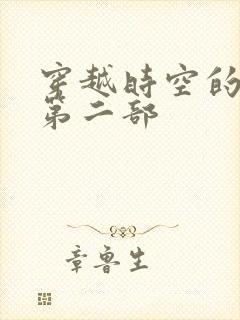 穿越時空的
第二部
章魯生